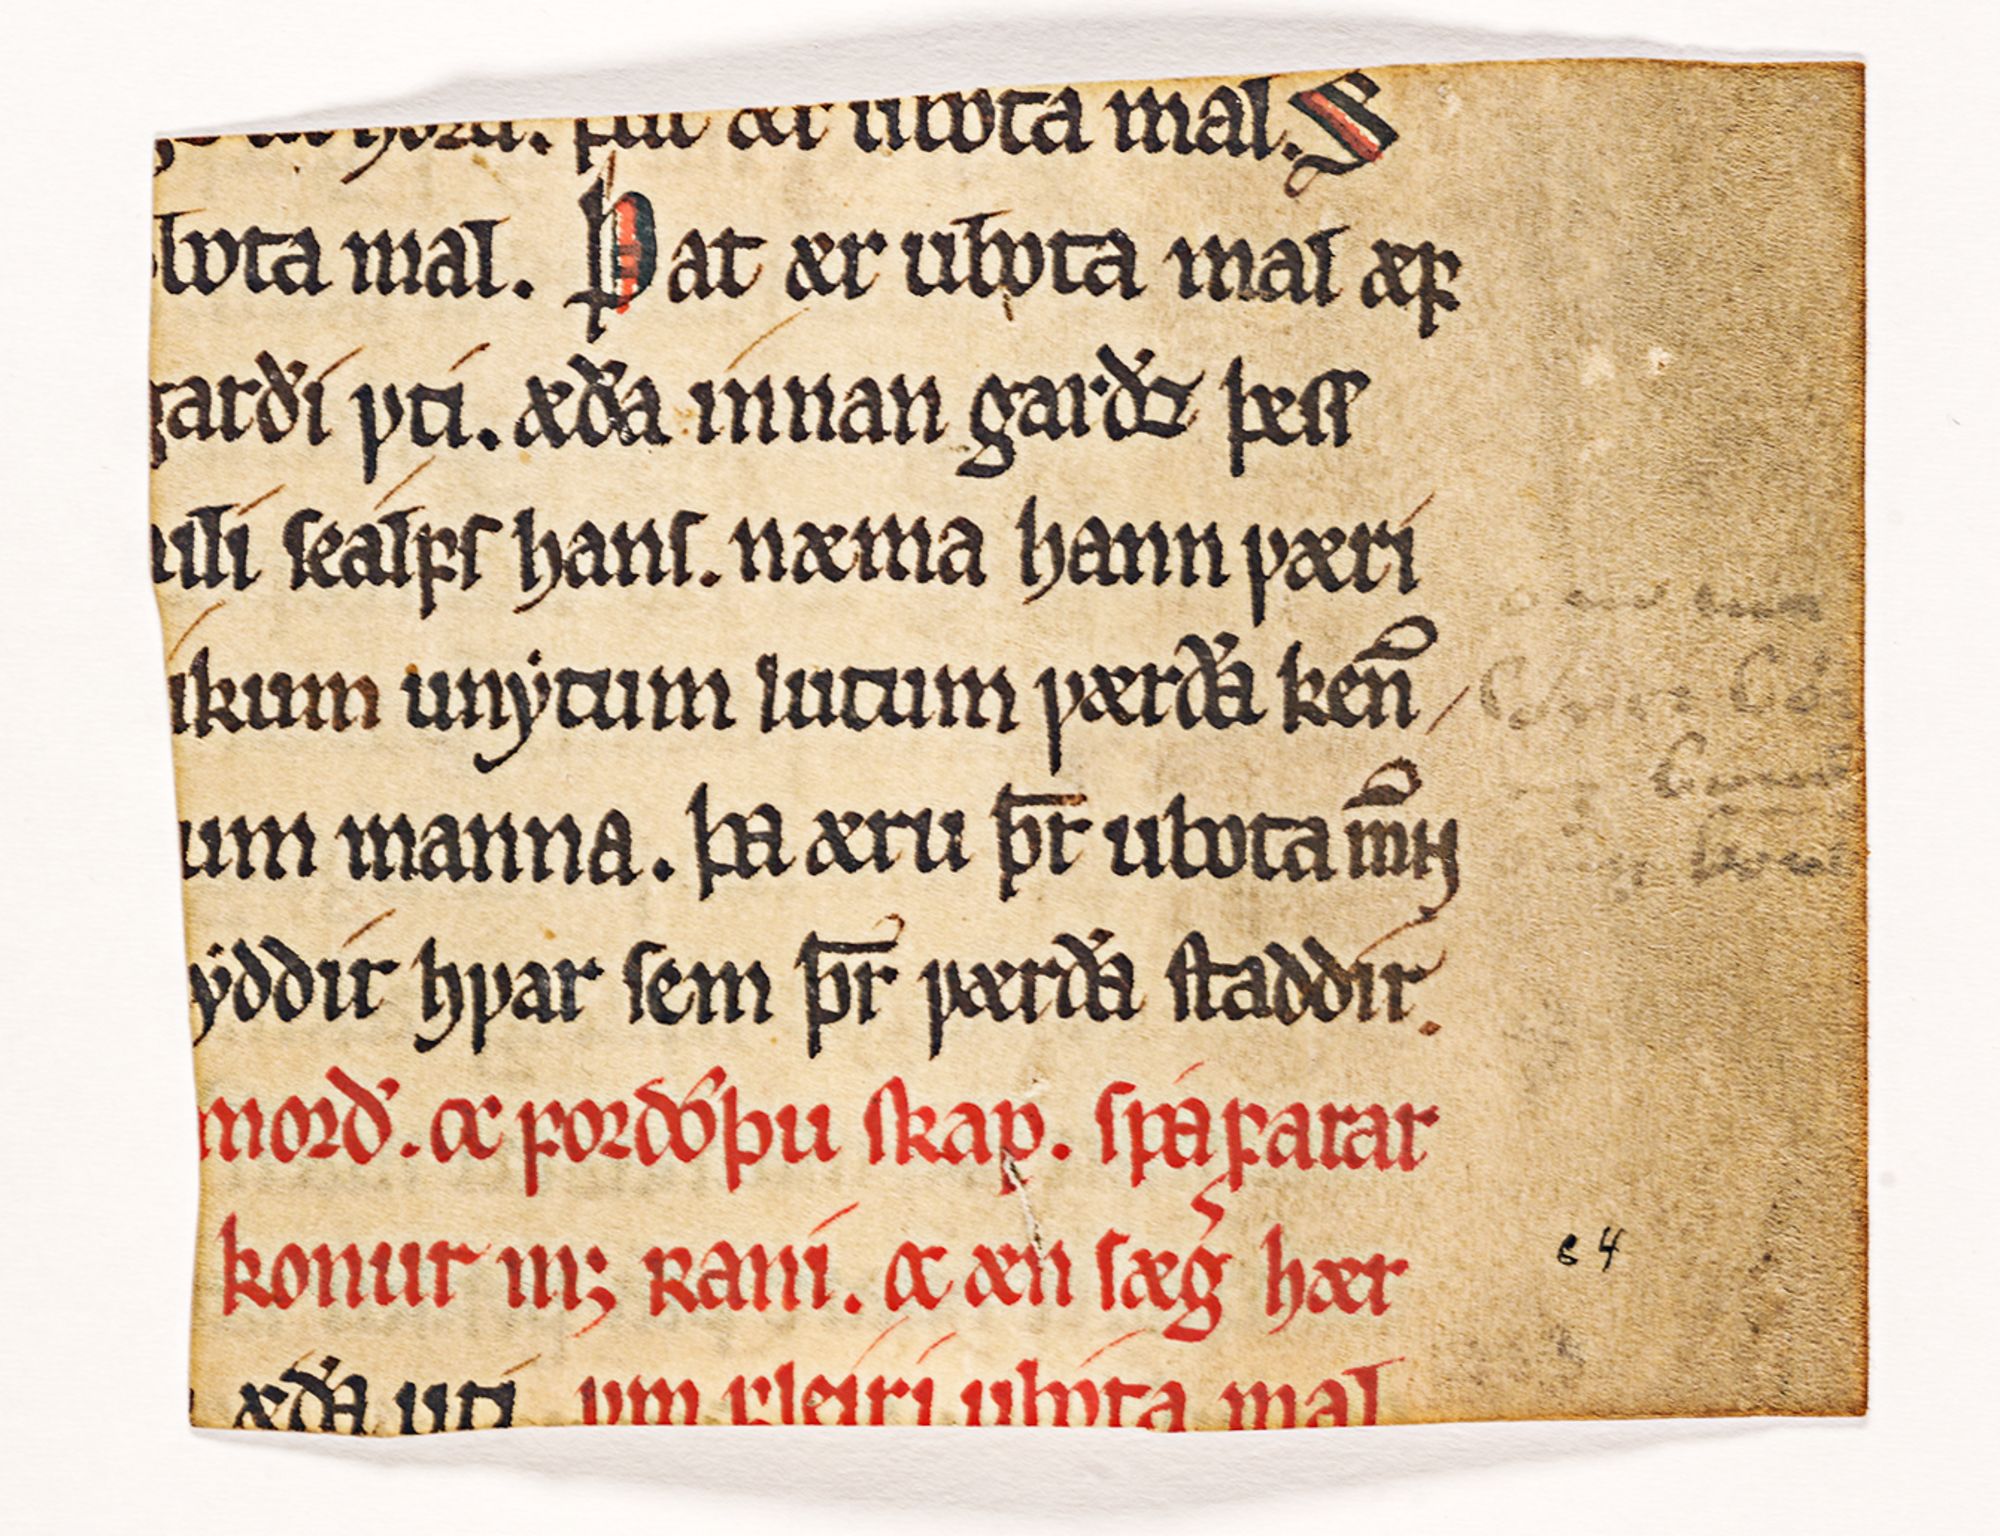 þat ær ubota mal. S
bota mal. Þat ær ubota mal æꝼ
garði ꝩti. æða innan garðz þess
uili sealꝼs hans. næma hann ꝩæri
ikum unẏtum lutum ꝩærða ken̅
um manna. þa æru þr̅ ubota m̅ꜧ
ẏddir hꝩar sem þr̅ ꝩærða staddir.
morð. oc ꝼorðoþu skap. spaꝼarar
konur íɴ; Rani. oc æn sægͥ hær
æða uti ꝩm ꝼleiri ubota mal
64